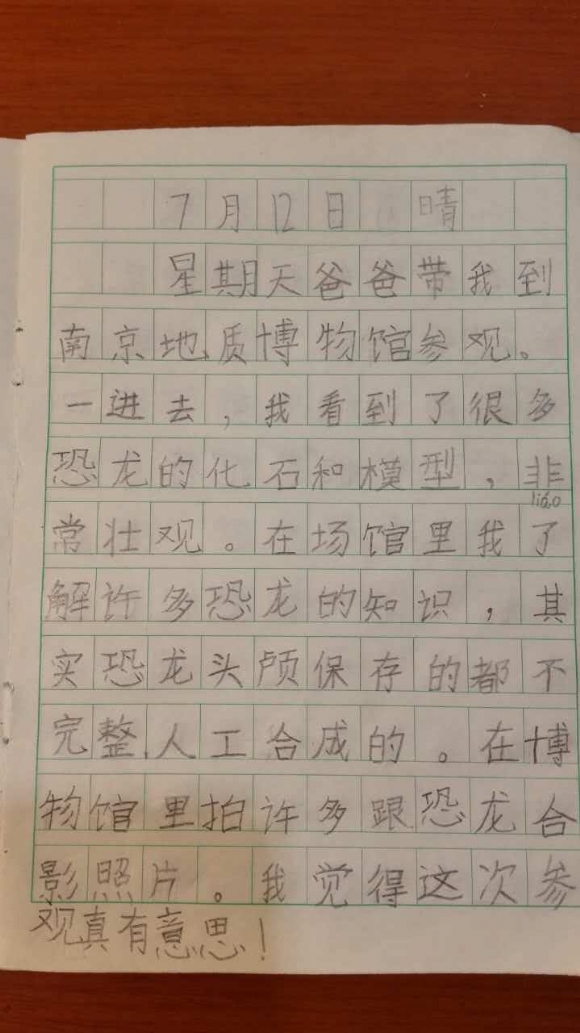 7月12日 晴
星期天爸爸带我到
南京地质博物馆参观。
一进去，我看到了很多
恐龙的化石和模型，非
liǎo
常壮观。在场馆里我了
解许多恐龙的知识，其
实恐龙头颅保存的都不
完整人工合成的。在博
物馆里拍许多跟恐龙合
影照片。我觉得这次参
观真有意思！